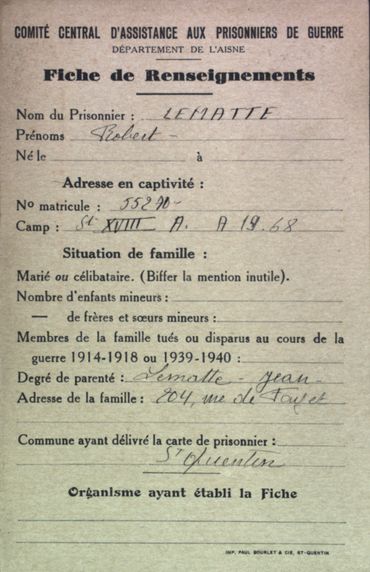 COMITÉ CENTRAL D'ASSISTANCE AUX PRISONNIERS DE GUERRE
DÉPARTEMENT DE L'AISNE
Fiche de Renseignements
Nom du Prisonnier : LEMATTE
Prénoms Robert -
Né le à
Adresse en captivité :
No matricule : 55270
Camp : St XVIII A. A 19.68
Situation de famille :
Marié ou célibataire. (Biffer la mention inutile).
Nombre d'enfants mineurs :
— de frères et sœurs mineurs :
Membres de la famille tués ou disparus au cours de la
guerre 1914-1918 ou 1939-1940 :
Degré de parenté : Lematte - Jean -
Adresse de la famille : 204, rue de Fayet
Commune ayant délivré la carte de prisonnier :
St Quentin
Organisme ayant établi la Fiche
IMP. PAUL BOURLET & CIE, ST-QUENTIN